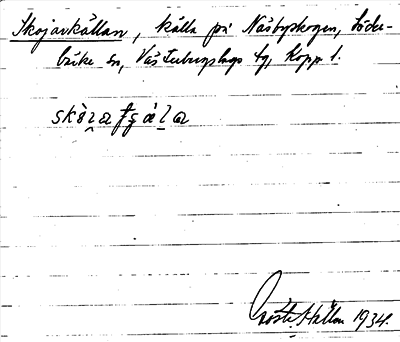 Skojarkällan, källa på Näsbyskogen, Söder-
bärke sn, Västerbergslags tg, Kopp. l.
Gösta Hallon 1934.